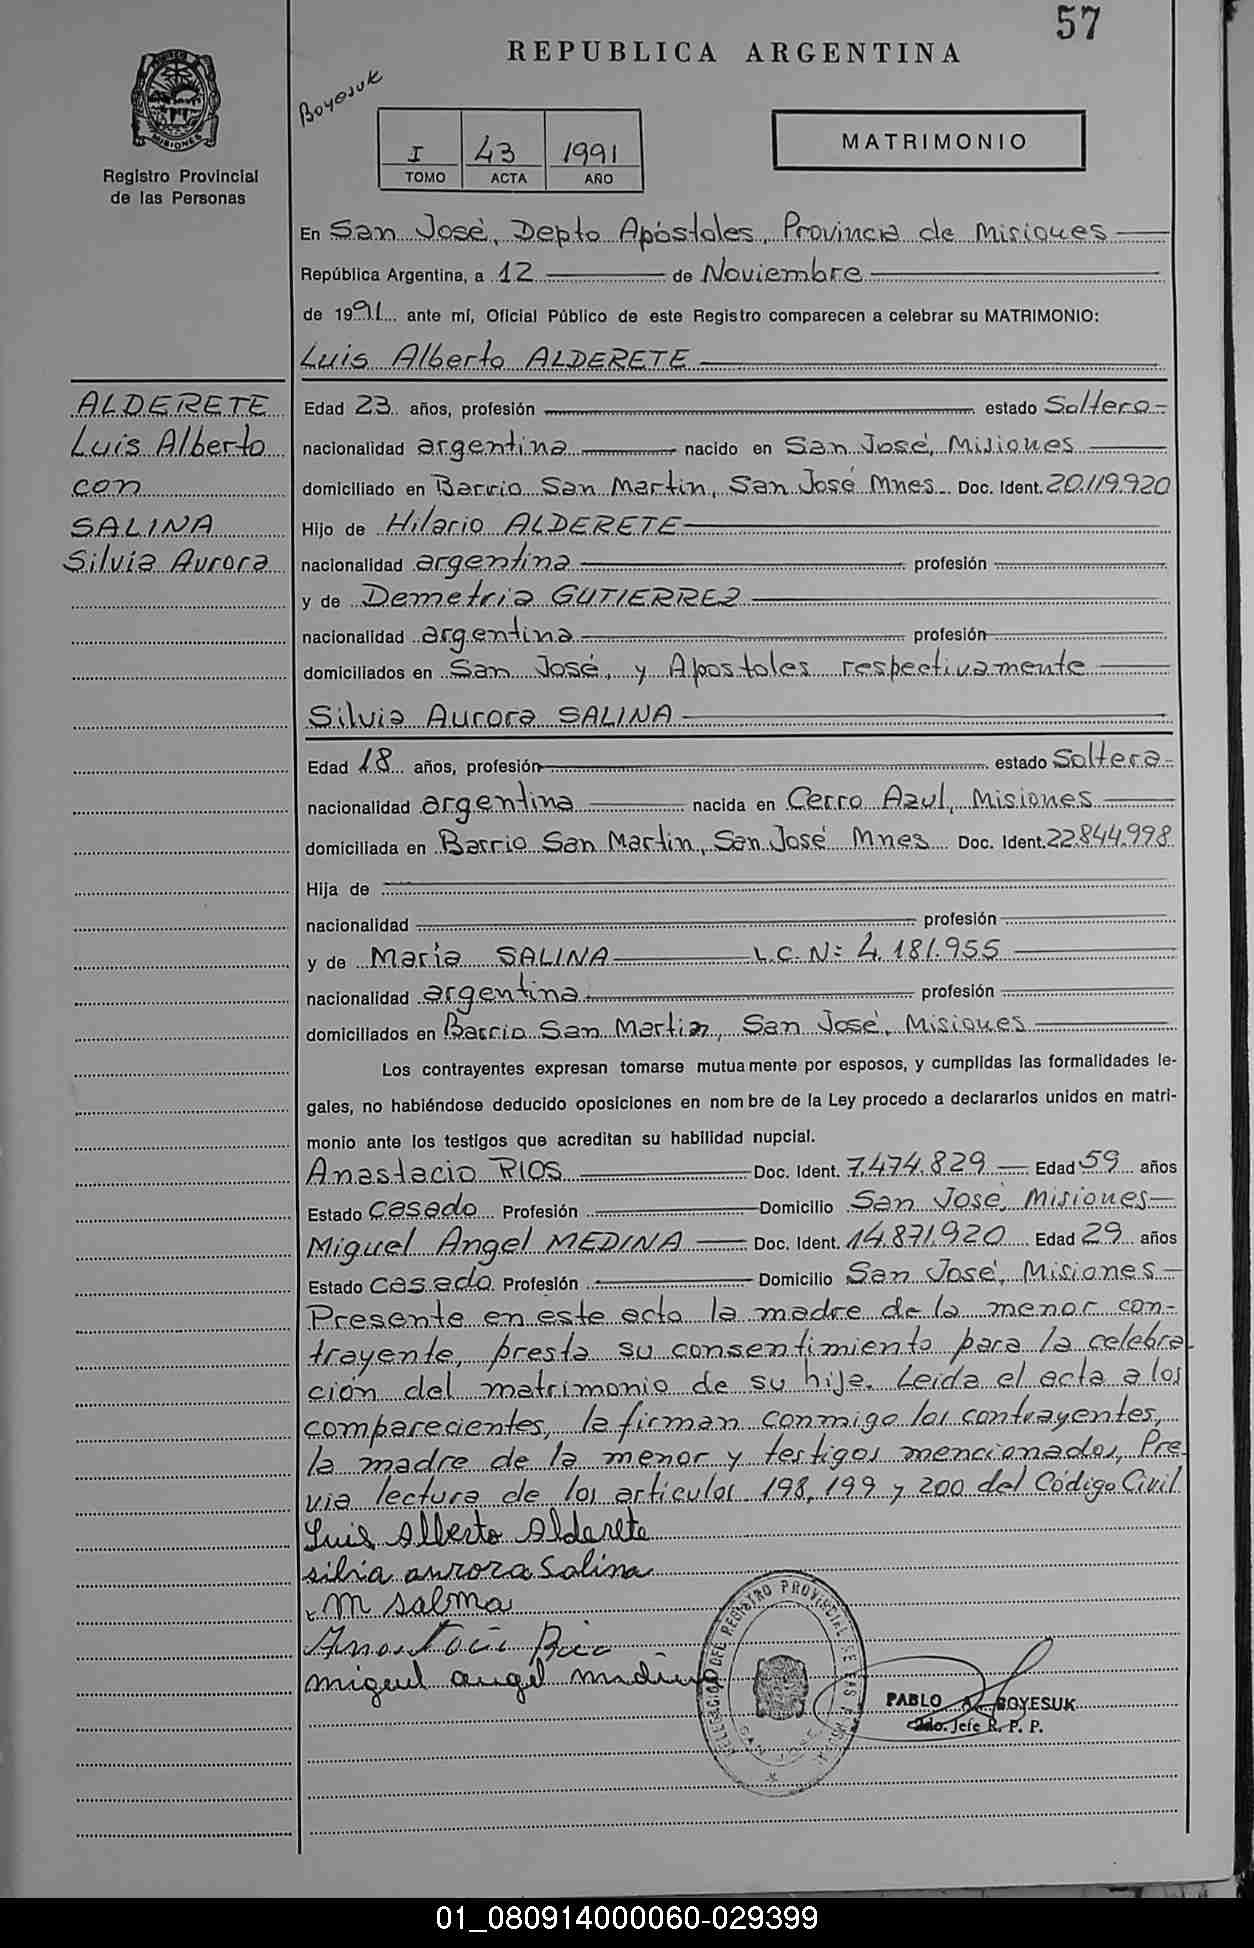 57
REPUBLICA ARGENTINA
Boyesuk
MISIONES
Registro Provincial
de las Personas
I 43 1991
TOMO ACTA AÑO
MATRIMONIO
En San José, Depto Apóstoles, Provincia de Misiones
República Argentina, a 12 de Noviembre
de 1991 ante mí, Oficial Público de este Registro comparecen a celebrar su MATRIMONIO:
Luis Alberto ALDERETE
ALDERETE
Luis Alberto
con
SALINA
Silvia Aurora
Edad 23 años, profesión estado Soltero
nacionalidad argentina nacido en San José, Misiones
domiciliado en Barrio San Martin, San José Mnes Doc. Ident. 20.119.920
Hijo de Hilario ALDERETE
nacionalidad argentina profesión
y de Demetria GUTIERREZ
nacionalidad argentina profesión
domiciliados en San José, y Apostoles respectivamente
Silvia Aurora SALINA
Edad 18 años, profesión estado Soltera
nacionalidad argentina nacida en Cerro Azul, Misiones
domiciliada en Barrio San Martin, San José Mnes Doc. Ident. 22.844.998
Hija de
nacionalidad profesión
y de Maria SALINA L.C. Nº 4.181.955
nacionalidad argentina profesión
domiciliados en Barrio San Martin, San José, Misiones
Los contrayentes expresan tomarse mutuamente por esposos, y cumplidas las formalidades le-
gales, no habiéndose deducido oposiciones en nombre de la Ley procedo a declararlos unidos en matri-
monio ante los testigos que acreditan su habilidad nupcial.
Anastacio RIOS Doc. Ident. 7.474.829 Edad 59 años
Estado casado Profesión Domicilio San José, Misiones
Miguel Angel MEDINA Doc. Ident. 14.871.920 Edad 29 años
Estado casado Profesión Domicilio San José, Misiones
Presente en este acto la madre de la menor con-
trayente, presta su consentimiento para la celebra
ción del matrimonio de su hija. Leida el acta a los
comparecientes, la firman conmigo los contrayentes,
la madre de la menor y testigos mencionados, Pre-
via lectura de los articulos 198, 199 y 200 del Código Civil
Luis Alberto Alderete
silvia aurora Salina
M salina
miguel angel medina
DELEGACION DEL REGISTRO PROVINCIAL DE LAS PERSONAS
SAN JOSE
PABLO A. BOYESUK
2do. Jefe R. P. P.
01_080914000060-029399